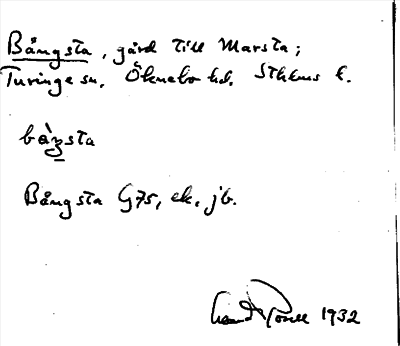 Bångsta, gård till Marsta;
Turinge sn, Öknebo hd, Sthlms l.
bàŋsta
Bångsta G75, ek, jb.
1932